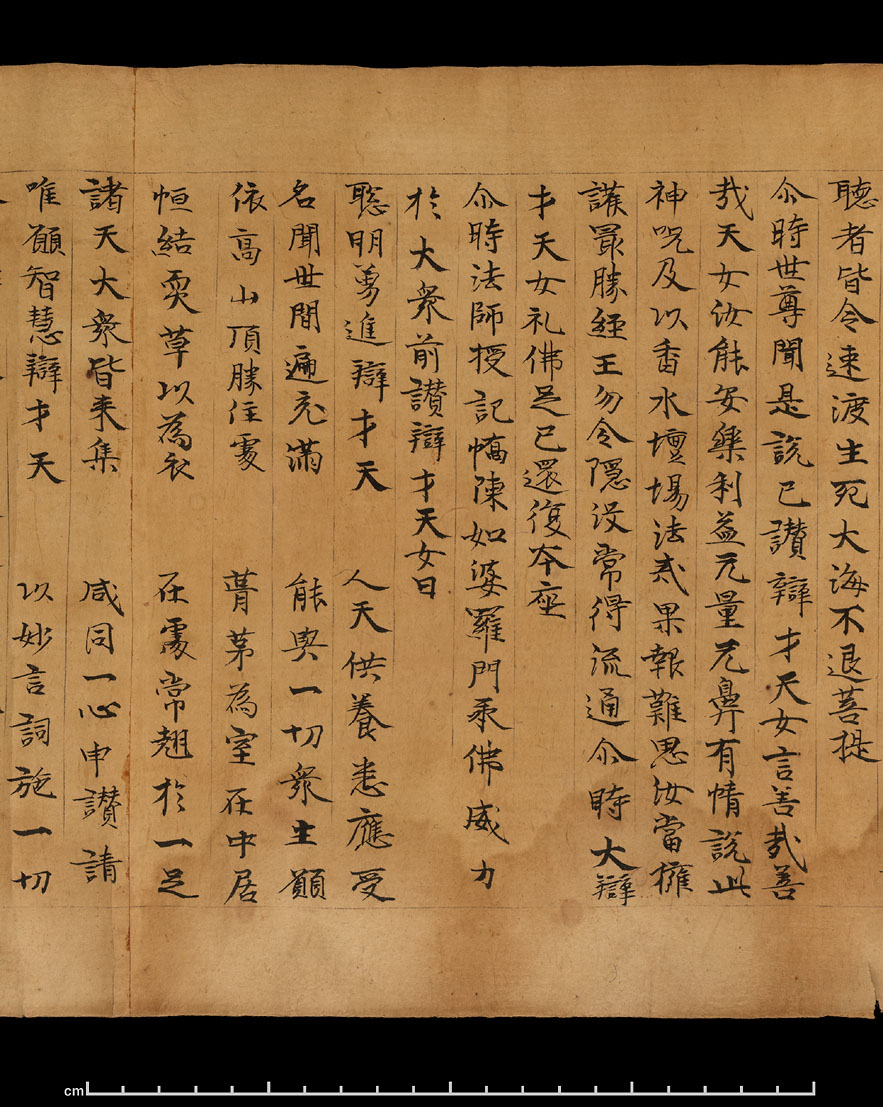 聽者皆令速渡生死大海不退菩提
尒時世尊聞是説已讃辯才天女言善哉善
哉天女汝能安樂利益无量无邊有情説此
神呪及以香水壇場法式果報難思汝當擁
護最勝經王勿令隱没常得流通尒時大辯
才天女礼佛足已還復本座
尒時法師授記憍陳如婆羅門承佛威力
於大衆前讃辯才天女曰
聡明勇進辯才天　人天供養悉應受
名聞世間遍充滿　能與一切衆生願
依高山頂勝住處　葺茅為室在中居
恒結耎草以為衣　在處常翹於一足
諸天大衆皆来集　咸同一心申讃請
唯願智慧辯才天　以妙言詞施一切
cm